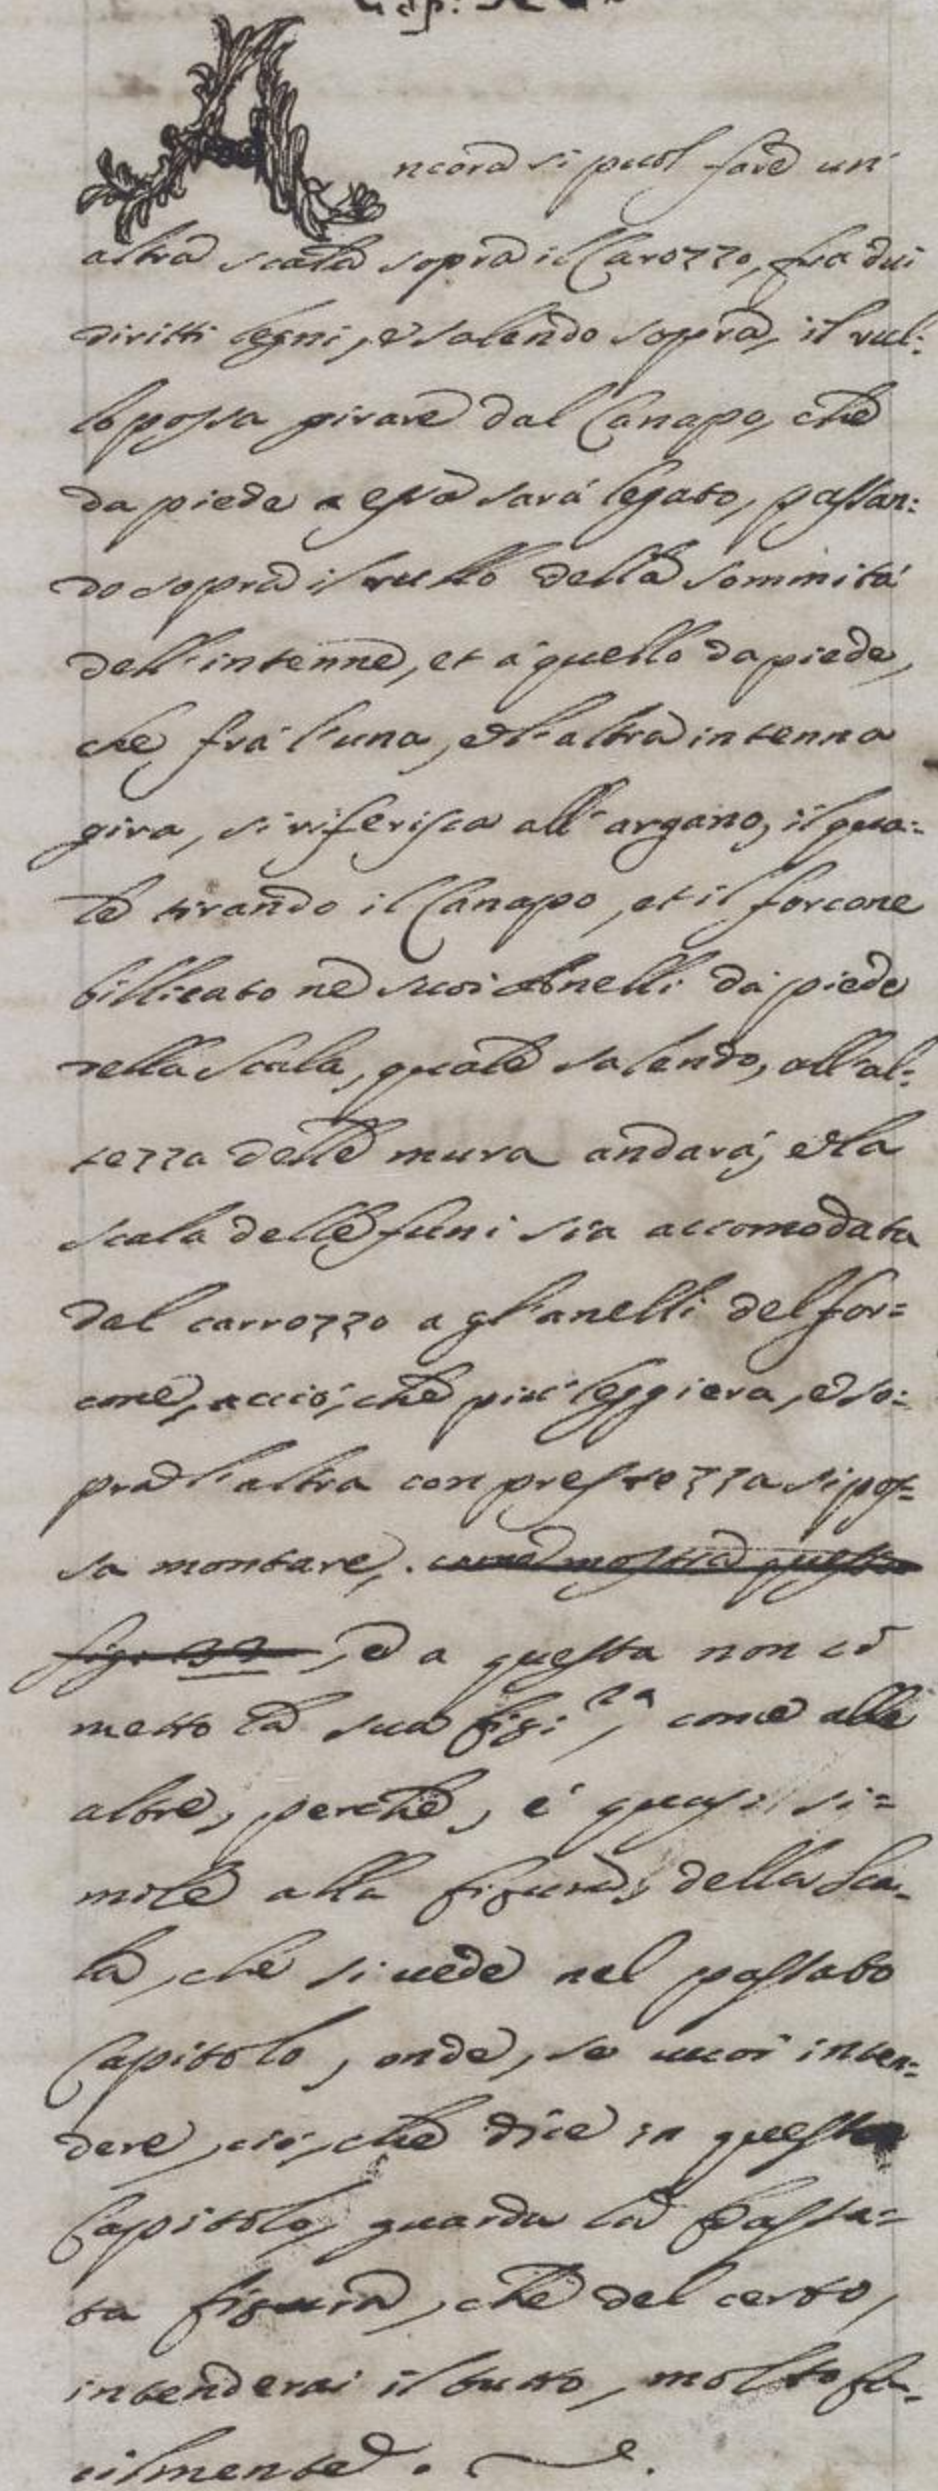 Cap:
Ancora si puol fare un'
altra scala sopra il Carozzo, fra dui
diritti legni, e salendo sopra, il rul:
lo possa girare dal Canapo, che
da piede a essa sará legato, passan:
do sopra il rullo della sommitá
dell'intenne, et á quello da piede,
che frá l'una, e l'altra intenna
gira, si riferisca all'argano, il qua:
le tirando il Canapo, et il forcone
billicato ne suoi Anelli da piede
della Scala, quale salendo, all'al:
tezza delle mura andará, e la
scala delle funi sia accomodata
del carrozzo a gl'anelli del for=
cone, acció, che piú leggiera, e so:
pra l'altra con prestezza si pos=
sa montare, . come mostra questa
fig: , e a questa non ci
metto la sua fig: ra, come alle
altre, perche, é quasi si=
mile alla figura, della Sca-
la, che si uede nel passato
Capitolo, onde, se uuoi inten:
dere, ció, che dice in questo
Capitolo, guarda la passa=
ta figura, che del certo,
intenderai il tutto, molto fa-
cilmente.